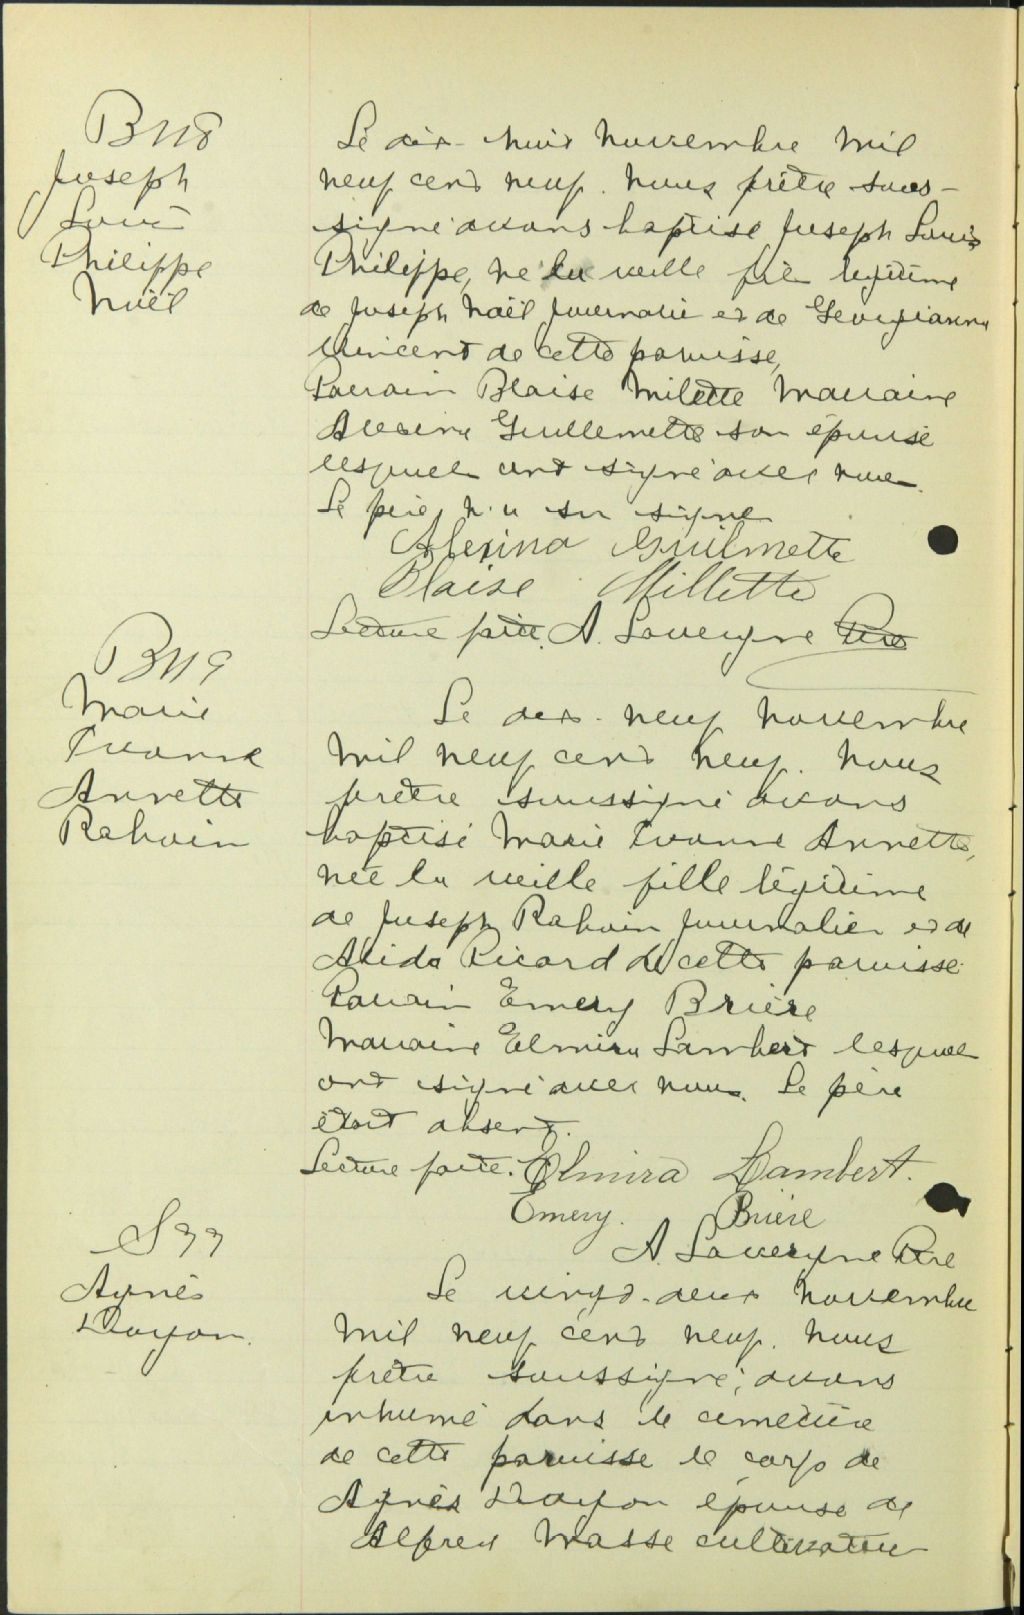 B118
Joseph
Louis
Philippe
Noël
Le dix-huit novembre mil
neuf cent neuf. Nous prêtre sous-
signé avons baptisé Joseph Louis
Philippe, né la veille fils légitime
de Joseph Noël journalier et de Georgianna
Vincent de cette paroisse,
Parrain Blaise Milette Marraine
Alexina Guillemette son épouse
lesquels ont signé avec nous.
Le père n'a su signe
Alexina Guilmette
Blaise Millette
Lecture faite. A. Lavergne Ptre
B119
Marie
Yvonne
Annette
Rahoin
Le dix-neuf novembre
mil neuf cent neuf. Nous
prêtre soussigné avons
baptisé Marie Yvonne Annette,
née la veille fille légitime
de Joseph Rahoin journalier et de
Alida Ricard de cette paroisse
Parrain Emery Brière
Marraine Elmira Lambert lesquels
ont signé avec nous. Le père
était absent.
Lecture faite. Elmira Lambert.
Emery. Brière
A. Lavergne Ptre
S77
Agnès
Doyon.
Le vingt-deux novembre
mil neuf cent neuf. Nous
prêtre soussigné, avons
inhumé dans le cimetière
de cette paroisse le corps de
Agnès Doyon épouse de
Alfred Masse cultivateur